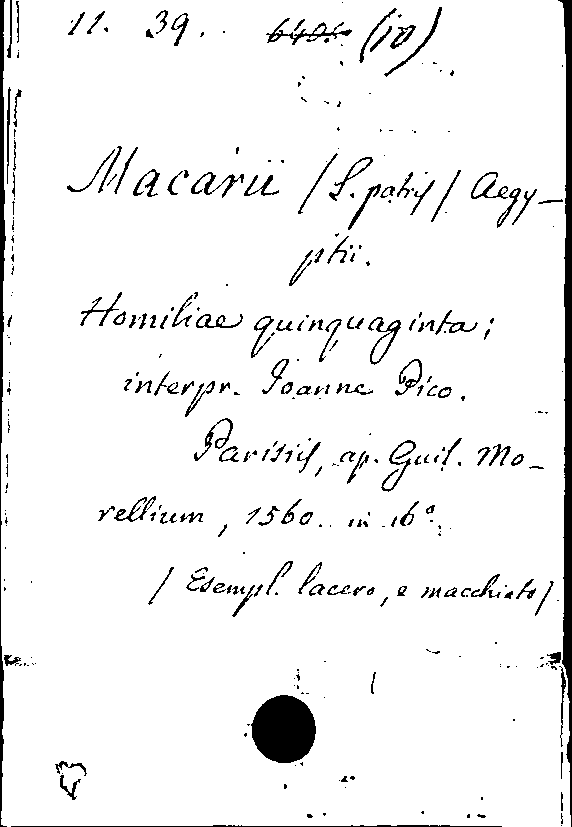 11. 39. (10)
Macarii /S. patris/ Aegy-
ptii.
Homiliae quinquaginta;
interpr. Ioanne Pico.
Parisiis, ap. Guil. Mo-
rellium, 1560. in 16°.
/Esempl. lacero, e macchiato/